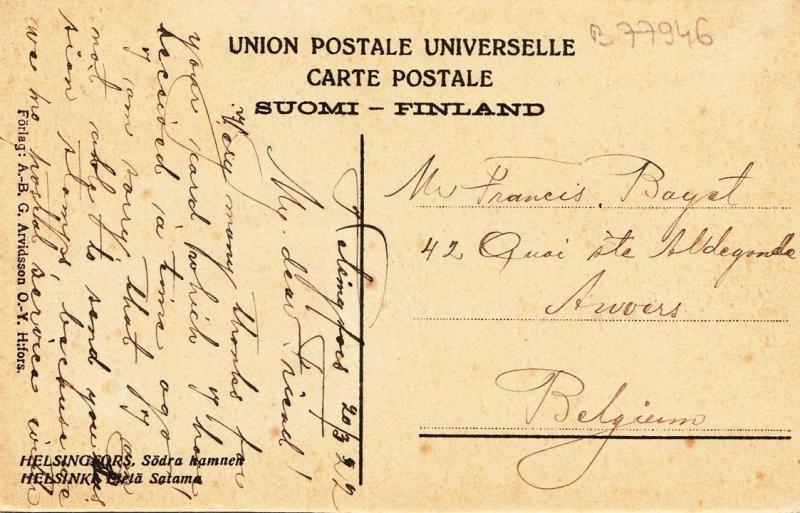 B 77946
UNION POSTALE UNIVERSELLE
CARTE POSTALE
SUOMI – FINLAND
Helsingfors 20/3 22
My dear Friend!
Very many thanks for
your card which y have
received a time ago.
y am sorry that y am
not able to send you
sion stamps, because
we no postal service with
Mr Francis. Bayet
42 Quai ste Aldegonde
Anvers
Belgium
Förlag: A.-B. G. Arvidsson O.-Y. H:fors.
HELSINGFORS, Södra hamnen
HELSINKI, Etelä Satama